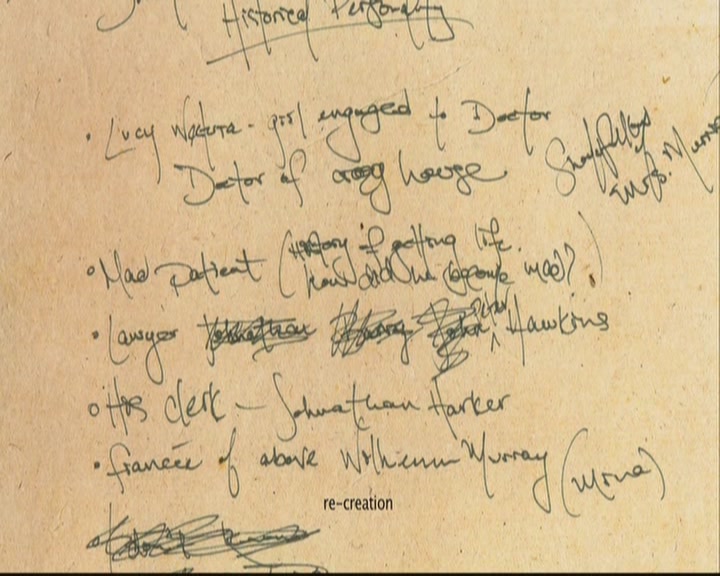 Historical Personality
• Lucy Westenra - girl engaged to Doctor
Schoolfellow of Miss Murray
Doctor of crazy house
• Mad Patient (theory of getting life.
how did he become mad?)
• Lawyer Peter Hawkins
• His clerk - Johnathan Harker
• fiancée of above Wilhemina Murray (Mina)
re-creation